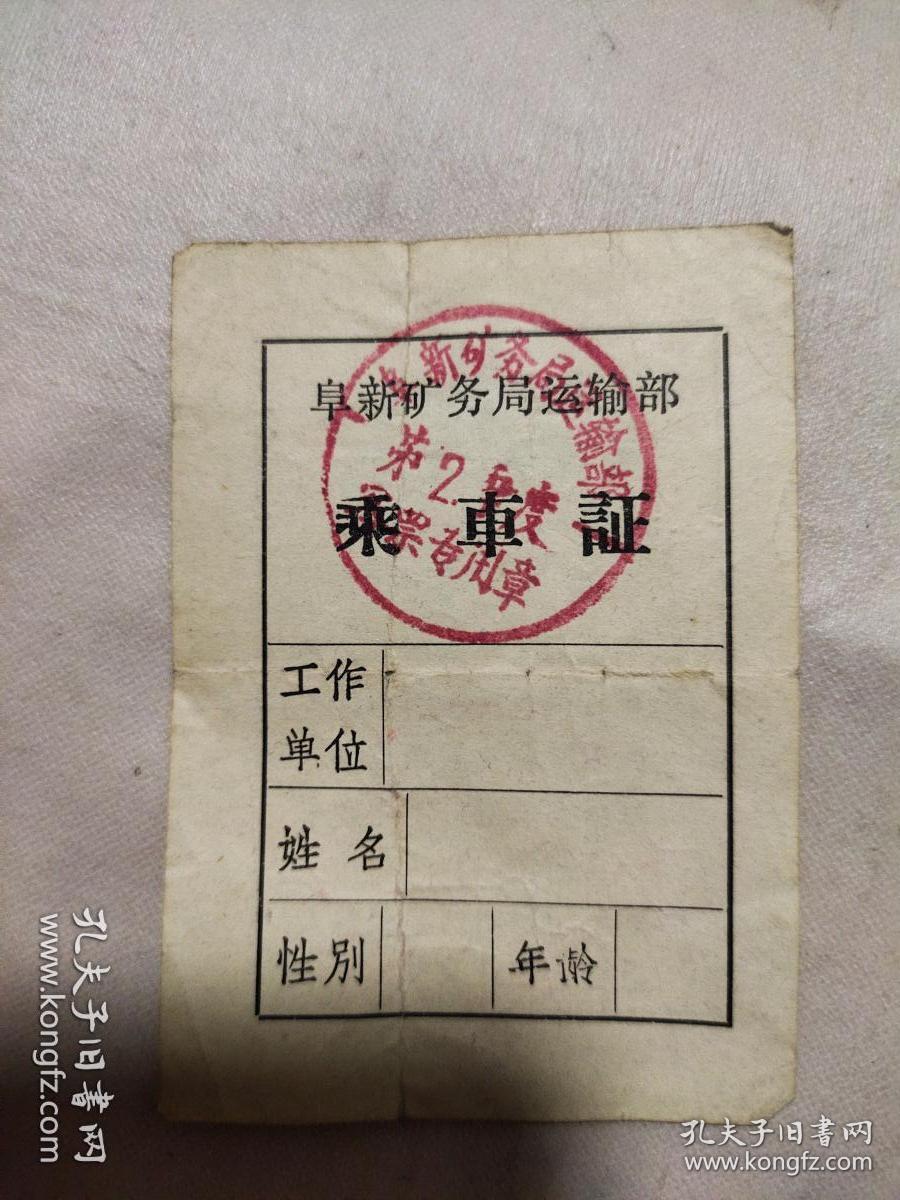 阜新矿务局运输部
阜新矿务局运输部
第2季度
票专用章
乘車証
工作
单位
姓名
性别
年龄
孔夫子旧书网
www.kongfz.com
孔夫子旧书网
www.kongfz.com